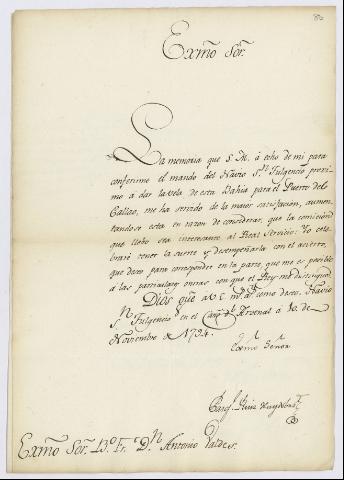 Exmo Sor.
La memoria que S. M. á echo de mi para
conferirme el mando del Navio Sn. Fulgencio proxi-
mo á dar la vela de esta Bahia para el Puerto del
Callao, me ha servido de la maior satisfacion, aumen-
tandose esta en razon de considerar, que la comicion
que llebo sea interesante al Real Servicio: Yo cele-
braré tener la suerte y desempeñarla con el acierto,
que devo para corresponder en la parte, que me es posible
á las particulares onrras con que el Rey me distingue.
Dios gue á V. E. ms. as. como deseo. Navio
Sn. Fulgencio en el Arsenal á 10. de
Noviembre de 1794.
Exmo Señor
Ruiz Huydobro
Exmo Sor. B.º Fr. Dn. Antonio Valdes.